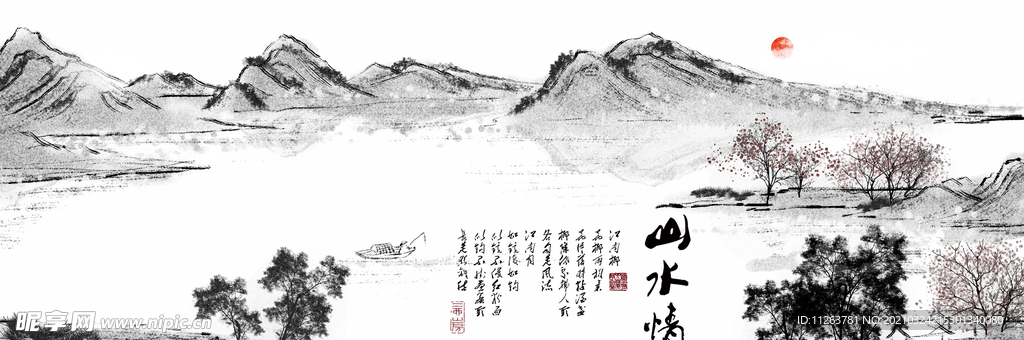 山水情
江南柳
花柳两相柔
花片落时黏酒盏
柳条低处拂人头
各自是风流
江南月
如镜复如钩
似镜不侵红粉面
似钩不挂画帘头
长是照离愁
昵享网 www.nipic.cn
ID:11263781 NO:20210324215301340080